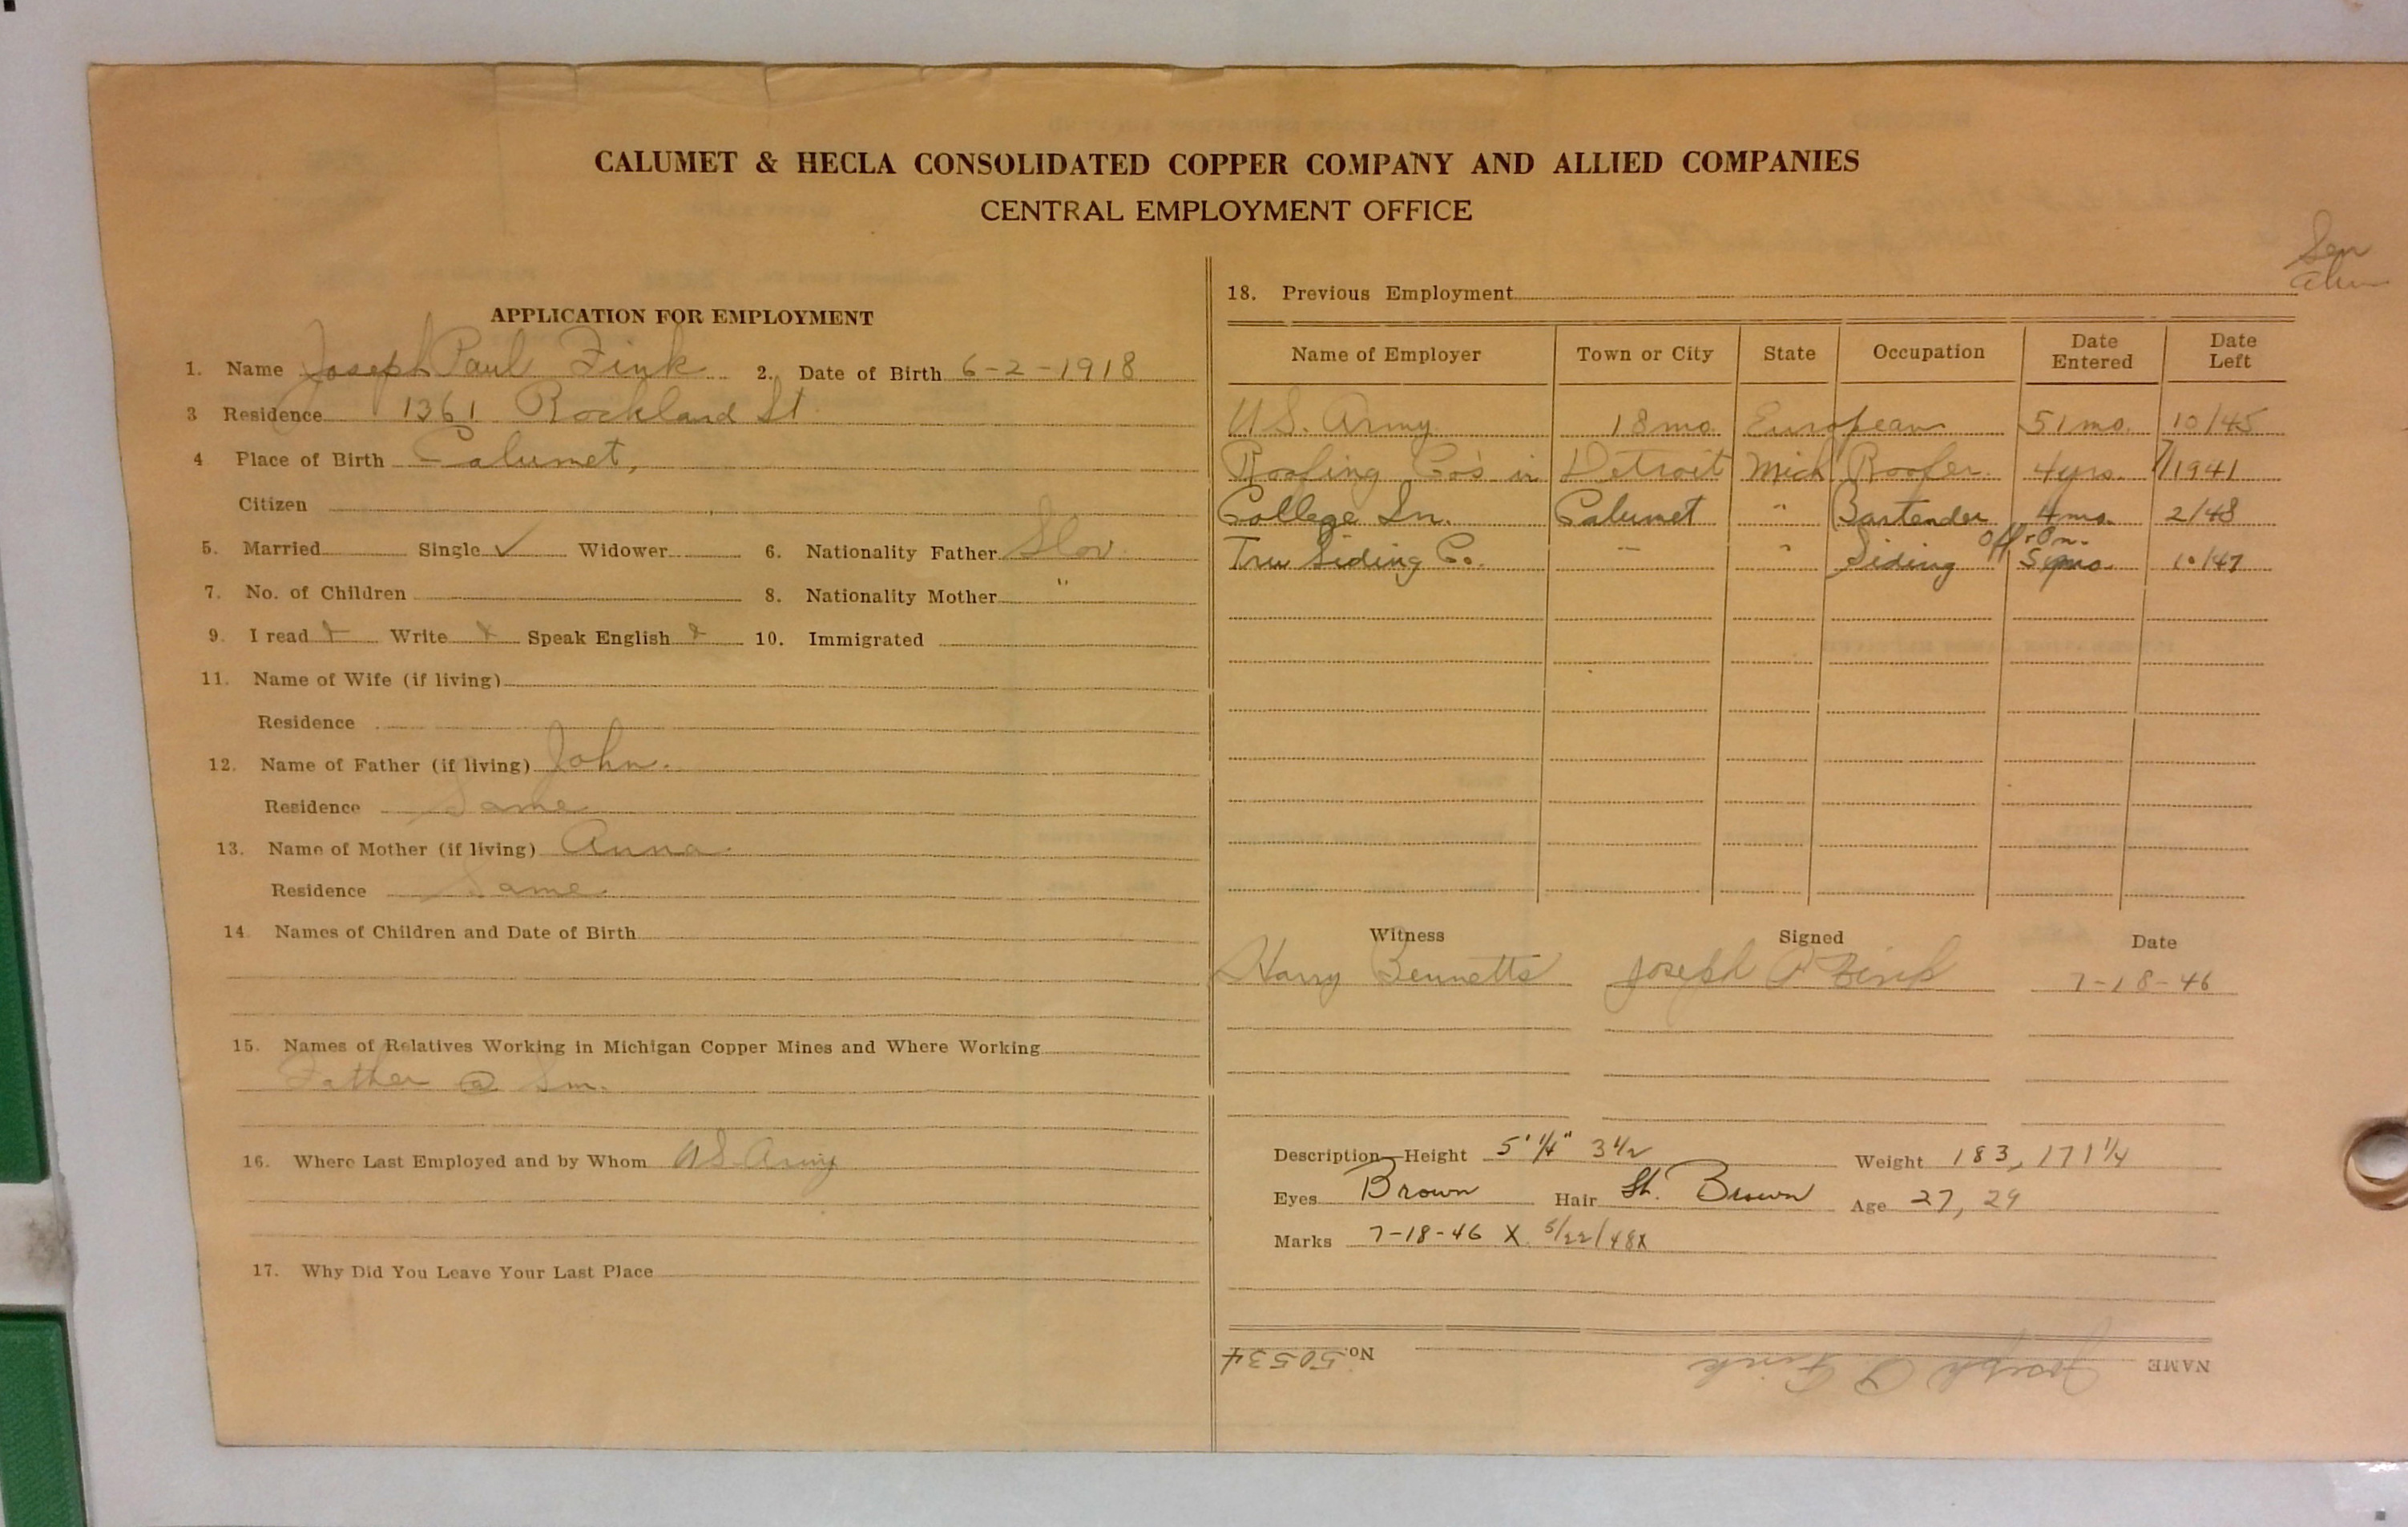 CALUMET & HECLA CONSOLIDATED COPPER COMPANY AND ALLIED COMPANIES
CENTRAL EMPLOYMENT OFFICE
APPLICATION FOR EMPLOYMENT
1. Name Joseph Paul Fink 2. Date of Birth 6-2-1918
3 Residence 1361 Rockland St
4 Place of Birth Calumet,
Citizen
5. Married Single ✓ Widower 6. Nationality Father Slov.
7. No. of Children 8. Nationality Mother "
9. I read x Write x Speak English x 10. Immigrated
11. Name of Wife (if living)
Residence
12. Name of Father (if living) John.
Residence Same
13. Name of Mother (if living) Anna
Residence Same
14. Names of Children and Date of Birth
15. Names of Relatives Working in Michigan Copper Mines and Where Working
Father @ Sm.
16. Where Last Employed and by Whom US Army
17. Why Did You Leave Your Last Place
Sen
18. Previous Employment
Name of Employer Town or City State Occupation Date Entered Date Left
U.S. Army 18 mo. European 51 mo. 10/45
Roofing Co's in Detroit Mich Roofer. 4 yrs. 7/1941
College In. Calumet " Bartender 4 mo. 2/48
Tru Siding Co. " " Siding Off-On. 5 mo. 10/47
Witness Signed Date
Harry Bennetts Joseph P Fink 7-18-46
Description—Height 5' 1/4" 3 1/2 Weight 183, 171 1/4
Eyes Brown Hair Lt. Brown Age 27, 29
Marks 7-18-46 X 5/22/48X
NAME Joseph P Fink No. 50534